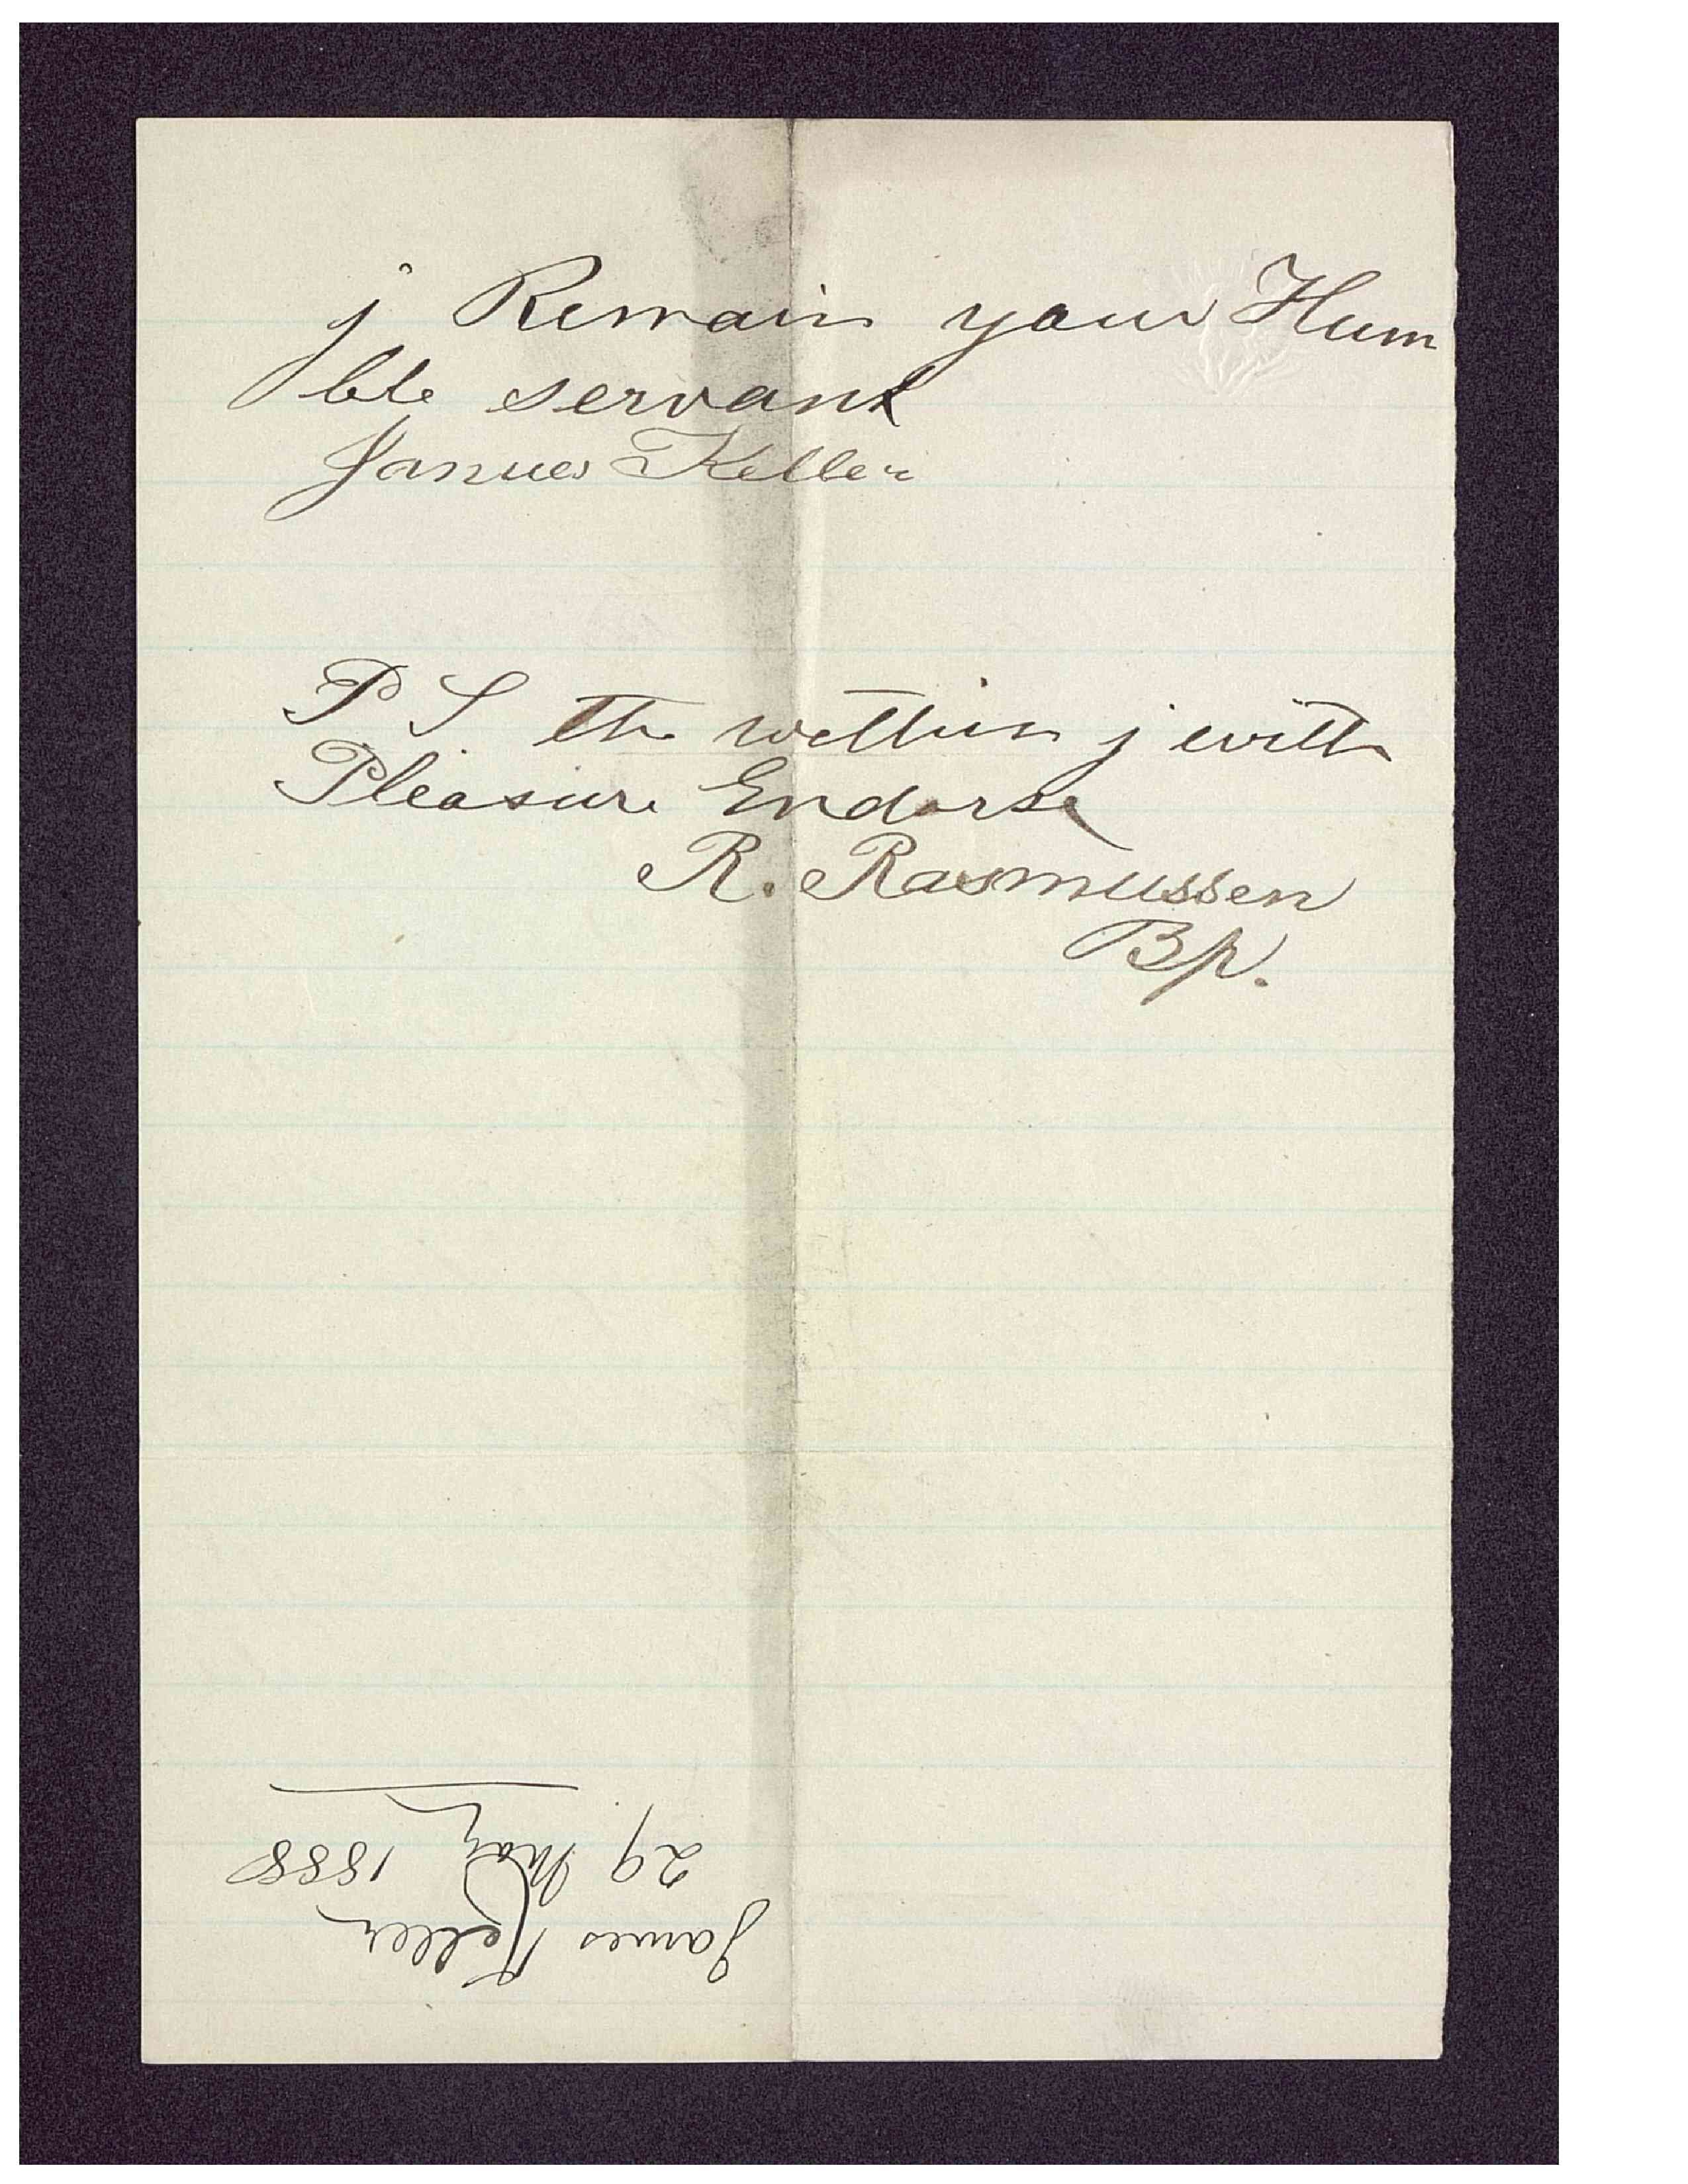 j Remain your Hum
ble servant
James Keller
P S the within j with
Pleasure Endorse
R. Rasmussen
Bp.
James Keller
29 May 1888